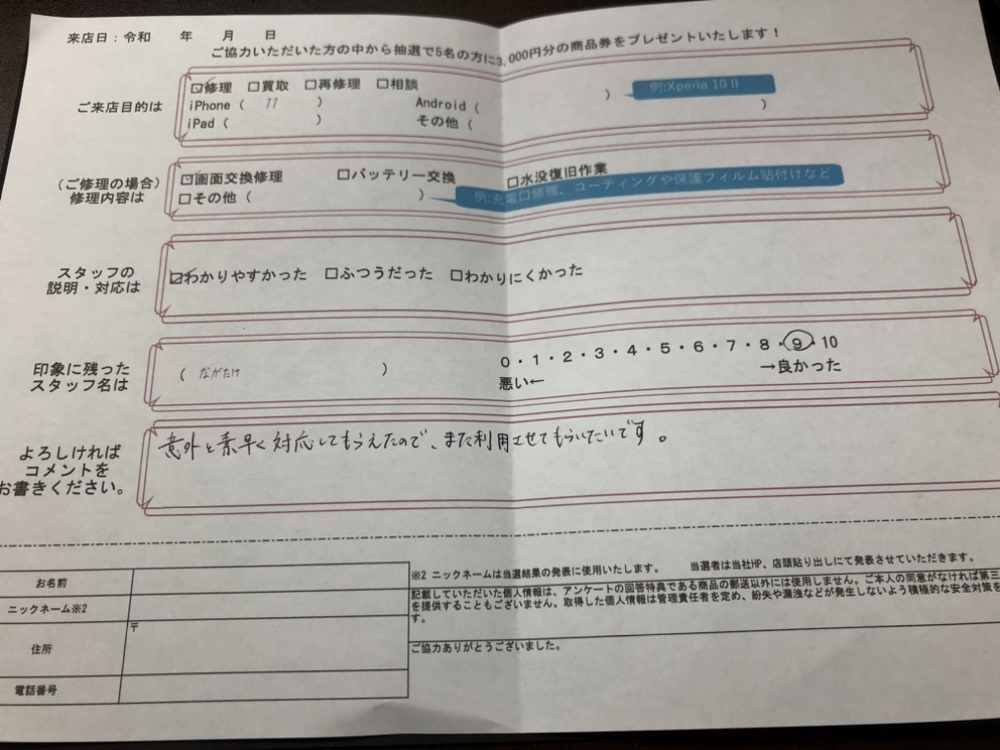 来店日：令和　年　月　日
ご協力いただいた方の中から抽選で5名の方に3,000円分の商品券をプレゼントいたします！
ご来店目的は
☑修理 □買取 □再修理 □相談
iPhone（ 11 ） Android（ ） 例:Xperia 10 II
iPad（ ） その他（ ）
（ご修理の場合）
修理内容は
☑画面交換修理 □バッテリー交換 □水没復旧作業
□その他（ ） 例:充電口修理、コーティングや保護フィルム貼付けなど
スタッフの
説明・対応は
☑わかりやすかった □ふつうだった □わかりにくかった
印象に残った
スタッフ名は
（ ながたけ ）
0・1・2・3・4・5・6・7・8・9・10
悪い← →良かった
よろしければ
コメントを
お書きください。
意外と素早く対応してもらえたので、また利用させてもらいたいです。
お名前
ニックネーム※2
住所
〒
電話番号
※2 ニックネームは当選結果の発表に使用いたします。 当選者は当社HP、店頭貼り出しにて発表させていただきます。
記載していただいた個人情報は、アンケートの回答特典である商品の郵送以外には使用しません。ご本人の同意がなければ第三
を提供することもございません。取得した個人情報は管理責任者を定め、紛失や漏洩などが発生しないよう積極的な安全対策を
す。
ご協力ありがとうございました。